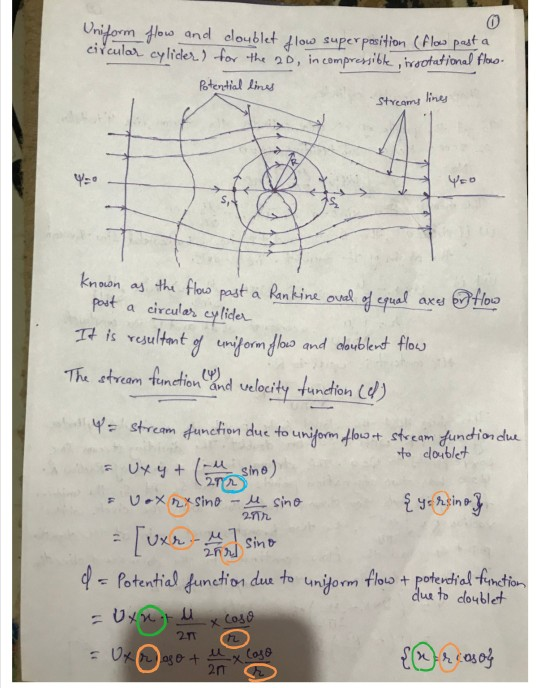 ①
Uniform flow and doublet flow superposition (flow past a
circular cylider) for the 2D, incompressible, irrotational flow.
Potential lines
Streams lines
ψ=0
R
S₁
S₂
ψ=0
Known as the flow past a Rankine oval of equal axes or flow
past a circular cylider
It is resultant of uniform flow and doublent flow
The stream function (ψ) and velocity function (ϕ)
ψ = stream function due to uniform flow + stream function due
to doublet
= U×y + (-μ/2πr sinθ)
= U×r×sinθ - μ/2πr sinθ {y=rsinθ}
= [U×r - μ/2πr] sinθ
ϕ = Potential function due to uniform flow + potential function
due to doublet
= U×x + μ/2π × cosθ/r
= U×r cosθ + μ/2π × cosθ/r {x=rcosθ}